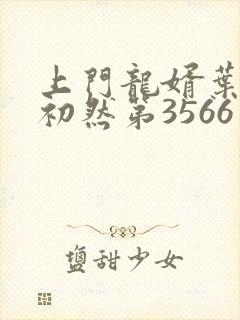 上門龍婿葉
初然第3566
鹽甜少女